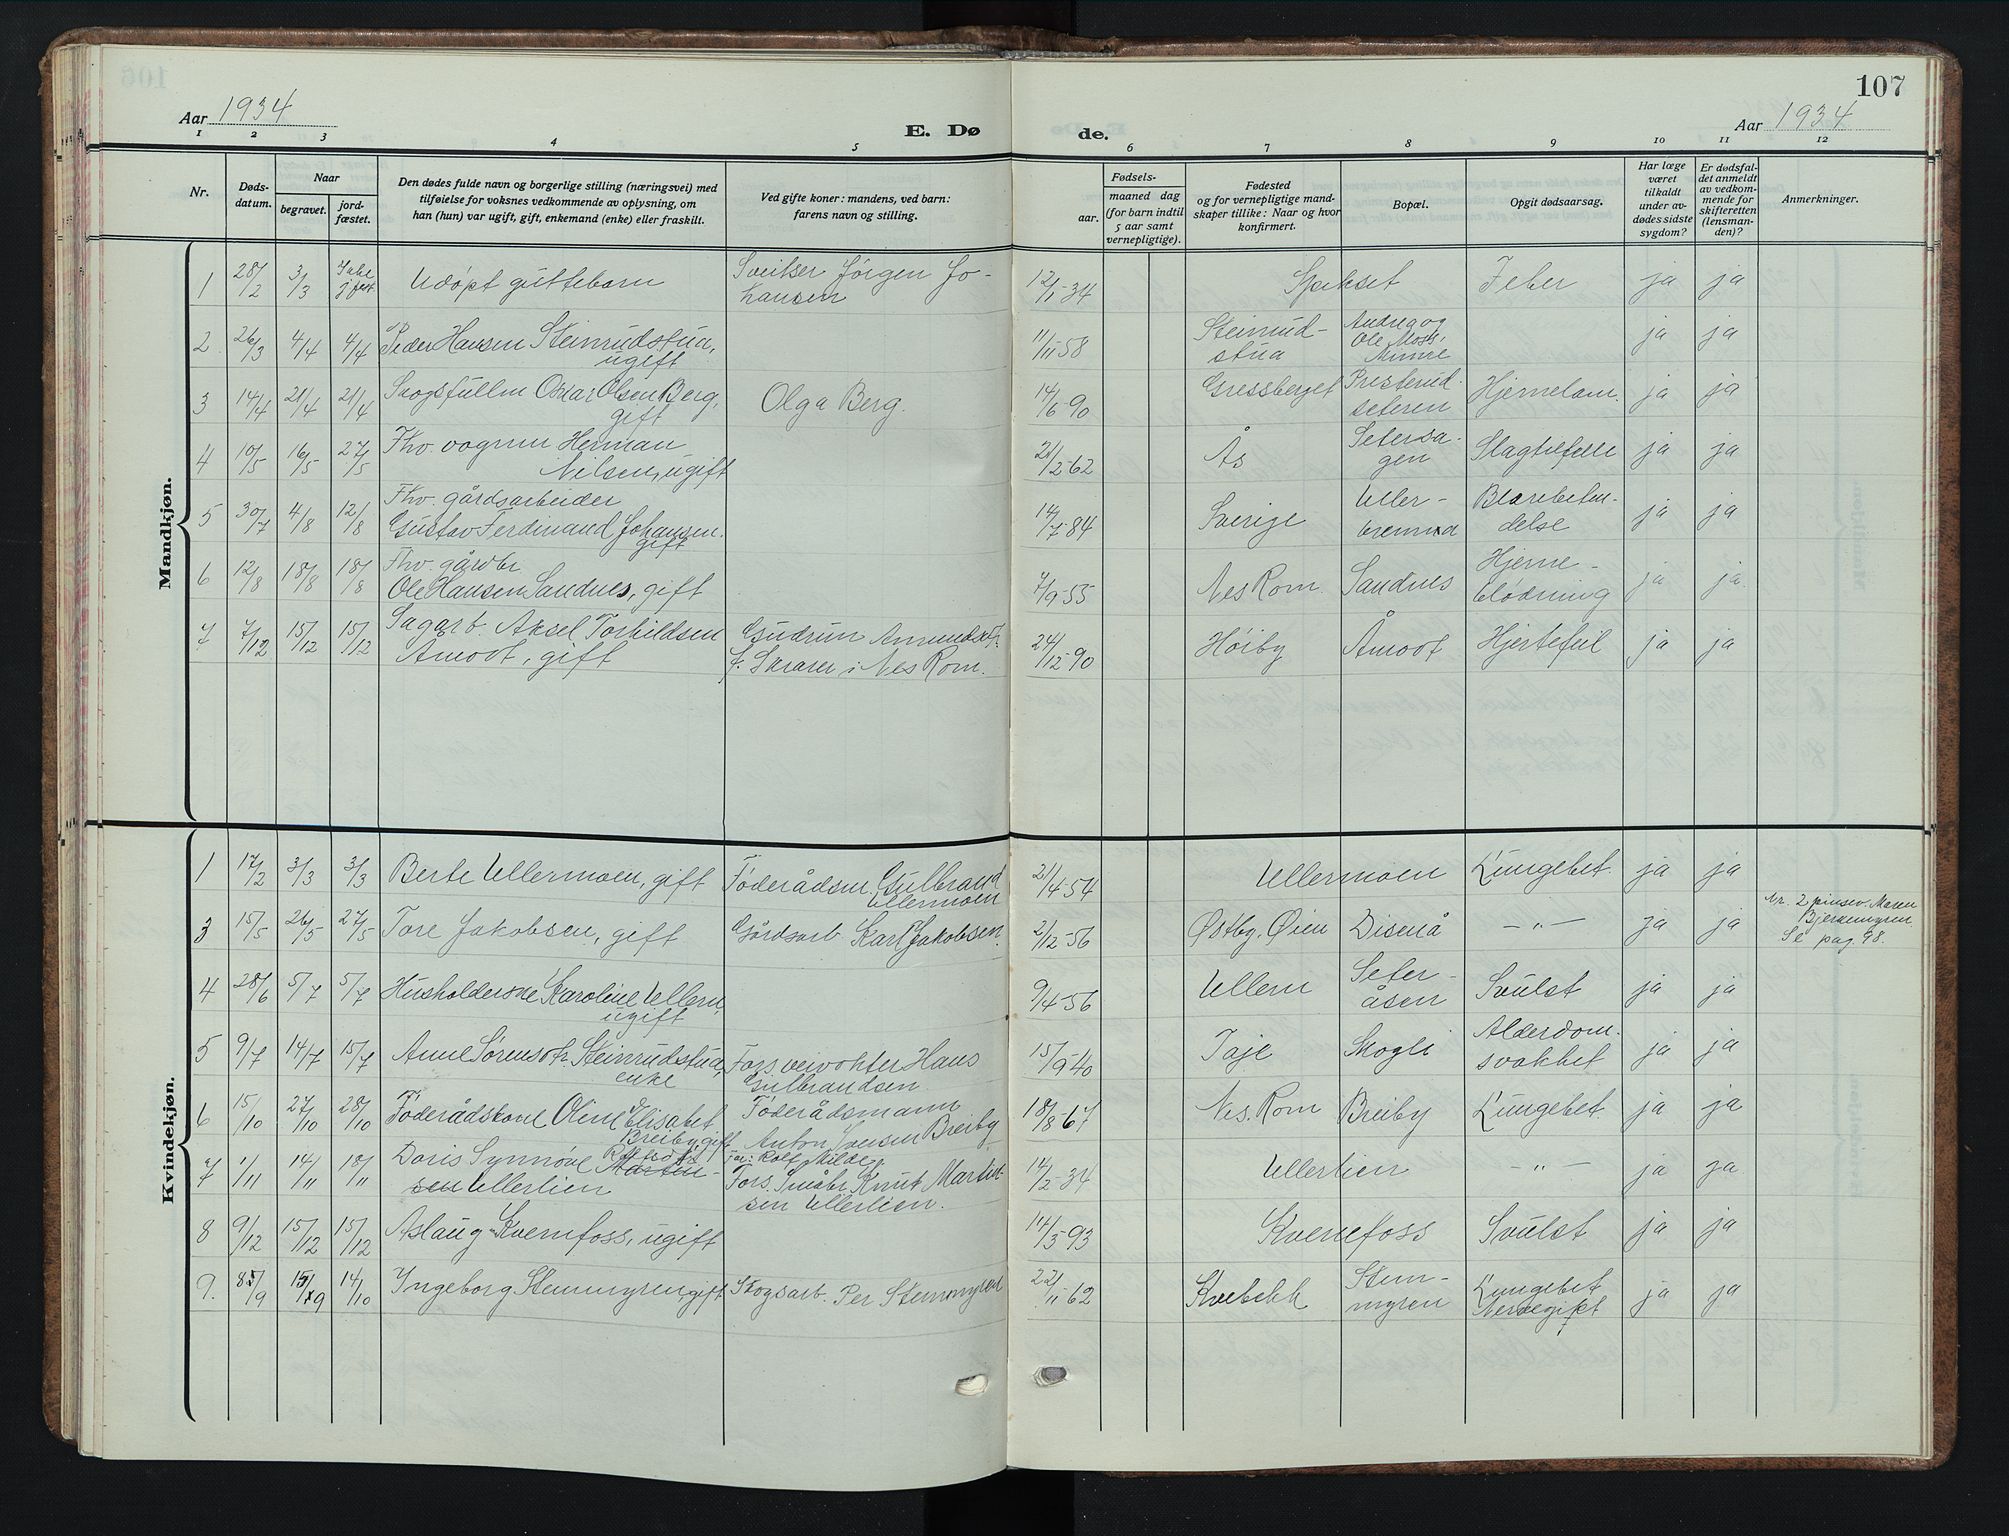 107
Aar 1934
E. Dø
de.
Aar 1934
1 2 3 4 5 6 7 8 9 10 11 12
Nr.
Døds-
datum.
Naar
begravet.
jord-
fæstet.
Den dødes fulde navn og borgerlige stilling (næringsvei) med
tilføielse for voksnes vedkommende av oplysning, om
han (hun) var ugift, gift, enkemand (enke) eller fraskilt.
Ved gifte koner: mandens, ved barn:
farens navn og stilling.
Fødsels-
aar.
maaned dag
(for barn indtil
5 aar samt
vernepligtige).
Fødested
og for vernepligtige mand-
skaper tillike: Naar og hvor
konfirmert.
Bopæl.
Opgit dødsaarsag.
Har læge
været
tilkaldt
under av-
dødes sidste
sygdom?
Er dødsfal-
det anmeldt
av vedkom-
mende for
skifteretten
(lensman-
den)?
Anmerkninger.
Mandkjøn.
1 28/2 3/3 Ikke j.fest. Udøpt guttebarn Sveitser Jørgen Jo-
hansen 12/1-34 Spikset Feber ja ja
2 26/3 4/4 4/4 Peder Hansen Steinrudstua,
ugift 11/11 58 Steinrud-
stua Andrea og
Ole Moss,
ja ja
3 14/4 21/4 21/4 Skogsfullm Oskar Olsen Berg,
gift Olga Berg. 14/6-90 Gressberget Presterud-
seteren Hjernelam. ja ja
4 10/5 16/5 27/5 Fhv. vognm Herman
Nilsen, ugift 21/2-62 Ås Setersa-
gen Slagtilfelle ja ja
5 30/7 4/8 12/8 Fhv. gårdsarbeider
Gustav Ferdinand Johansen.
gift 14/7-84 Sverige Uller-
Blærebeten-
delse ja ja
6 12/8 18/8 18/8 Fhv. gårdbr
Ole Hansen Sandnes, gift 7/9-55 Nes Rom. Sandnes Hjerne-
blødning ja ja.
7 7/12 15/12 15/12 Sagarb. Aksel Torkildsen
Åmodt, gift Gudrun Amundsdtr.
f. Skarer i Nes Rom. 24/12-90 Høiby Åmodt Hjertefeil ja ja
Kvindekjøn.
1 17/2 3/3 3/3 Berte Ullermoen, gift Føderådsm. Gulbrand
Ullermoen 21/4-54 Ullermoen Lungebet. ja ja
3 15/5 26/5 27/5 Tore Jakobsen, gift Gårdsarb. Karl Jakobsen. 2/12-56 Østby, Øien Disenå —"— ja ja Nr. 2 pinsev. Maren
Bjerkemyren
Se pag. 98.
4 28/6 5/7 5/7 Husholderske Karoline Ullern,
ugift 9/4-56 Ullern Seter-
åsen Svulst ja ja
5 9/7 14/7 15/7 Anne Sørensdtr. Steinrudstua,
enke Fors. veivokter Hans
Gulbrandsen 15/9-40 Taje Skogli Alderdom.
svakhet ja ja
6 15/10 27/10 28/10 Føderådskone Oline Elisabet
Breiby, gift Føderådsmann
Anton Jensen Breiby 18/8-67 Nes. Rom Breiby Lungebet. ja ja
7 1/11 14/11 18/11 Doris Synnøve Martin-
sen Ullerlien Far: Rolf Milde,
Fors. Småbr Knut Martin-
sen Ullerlien. 14/2-34 Ullerlien —"— ja ja
8 9/12 15/12 15/12 Aslaug Kvernfoss, ugift 14/3-93 Kvernfoss Svulst ja ja
9. 8/9 15/9 14/10 Ingeborg Stemmyren gift Skogsarb. Per Stemmyren 22/11-62 Kvebekk Stem-
myren Lungebet
ja ja